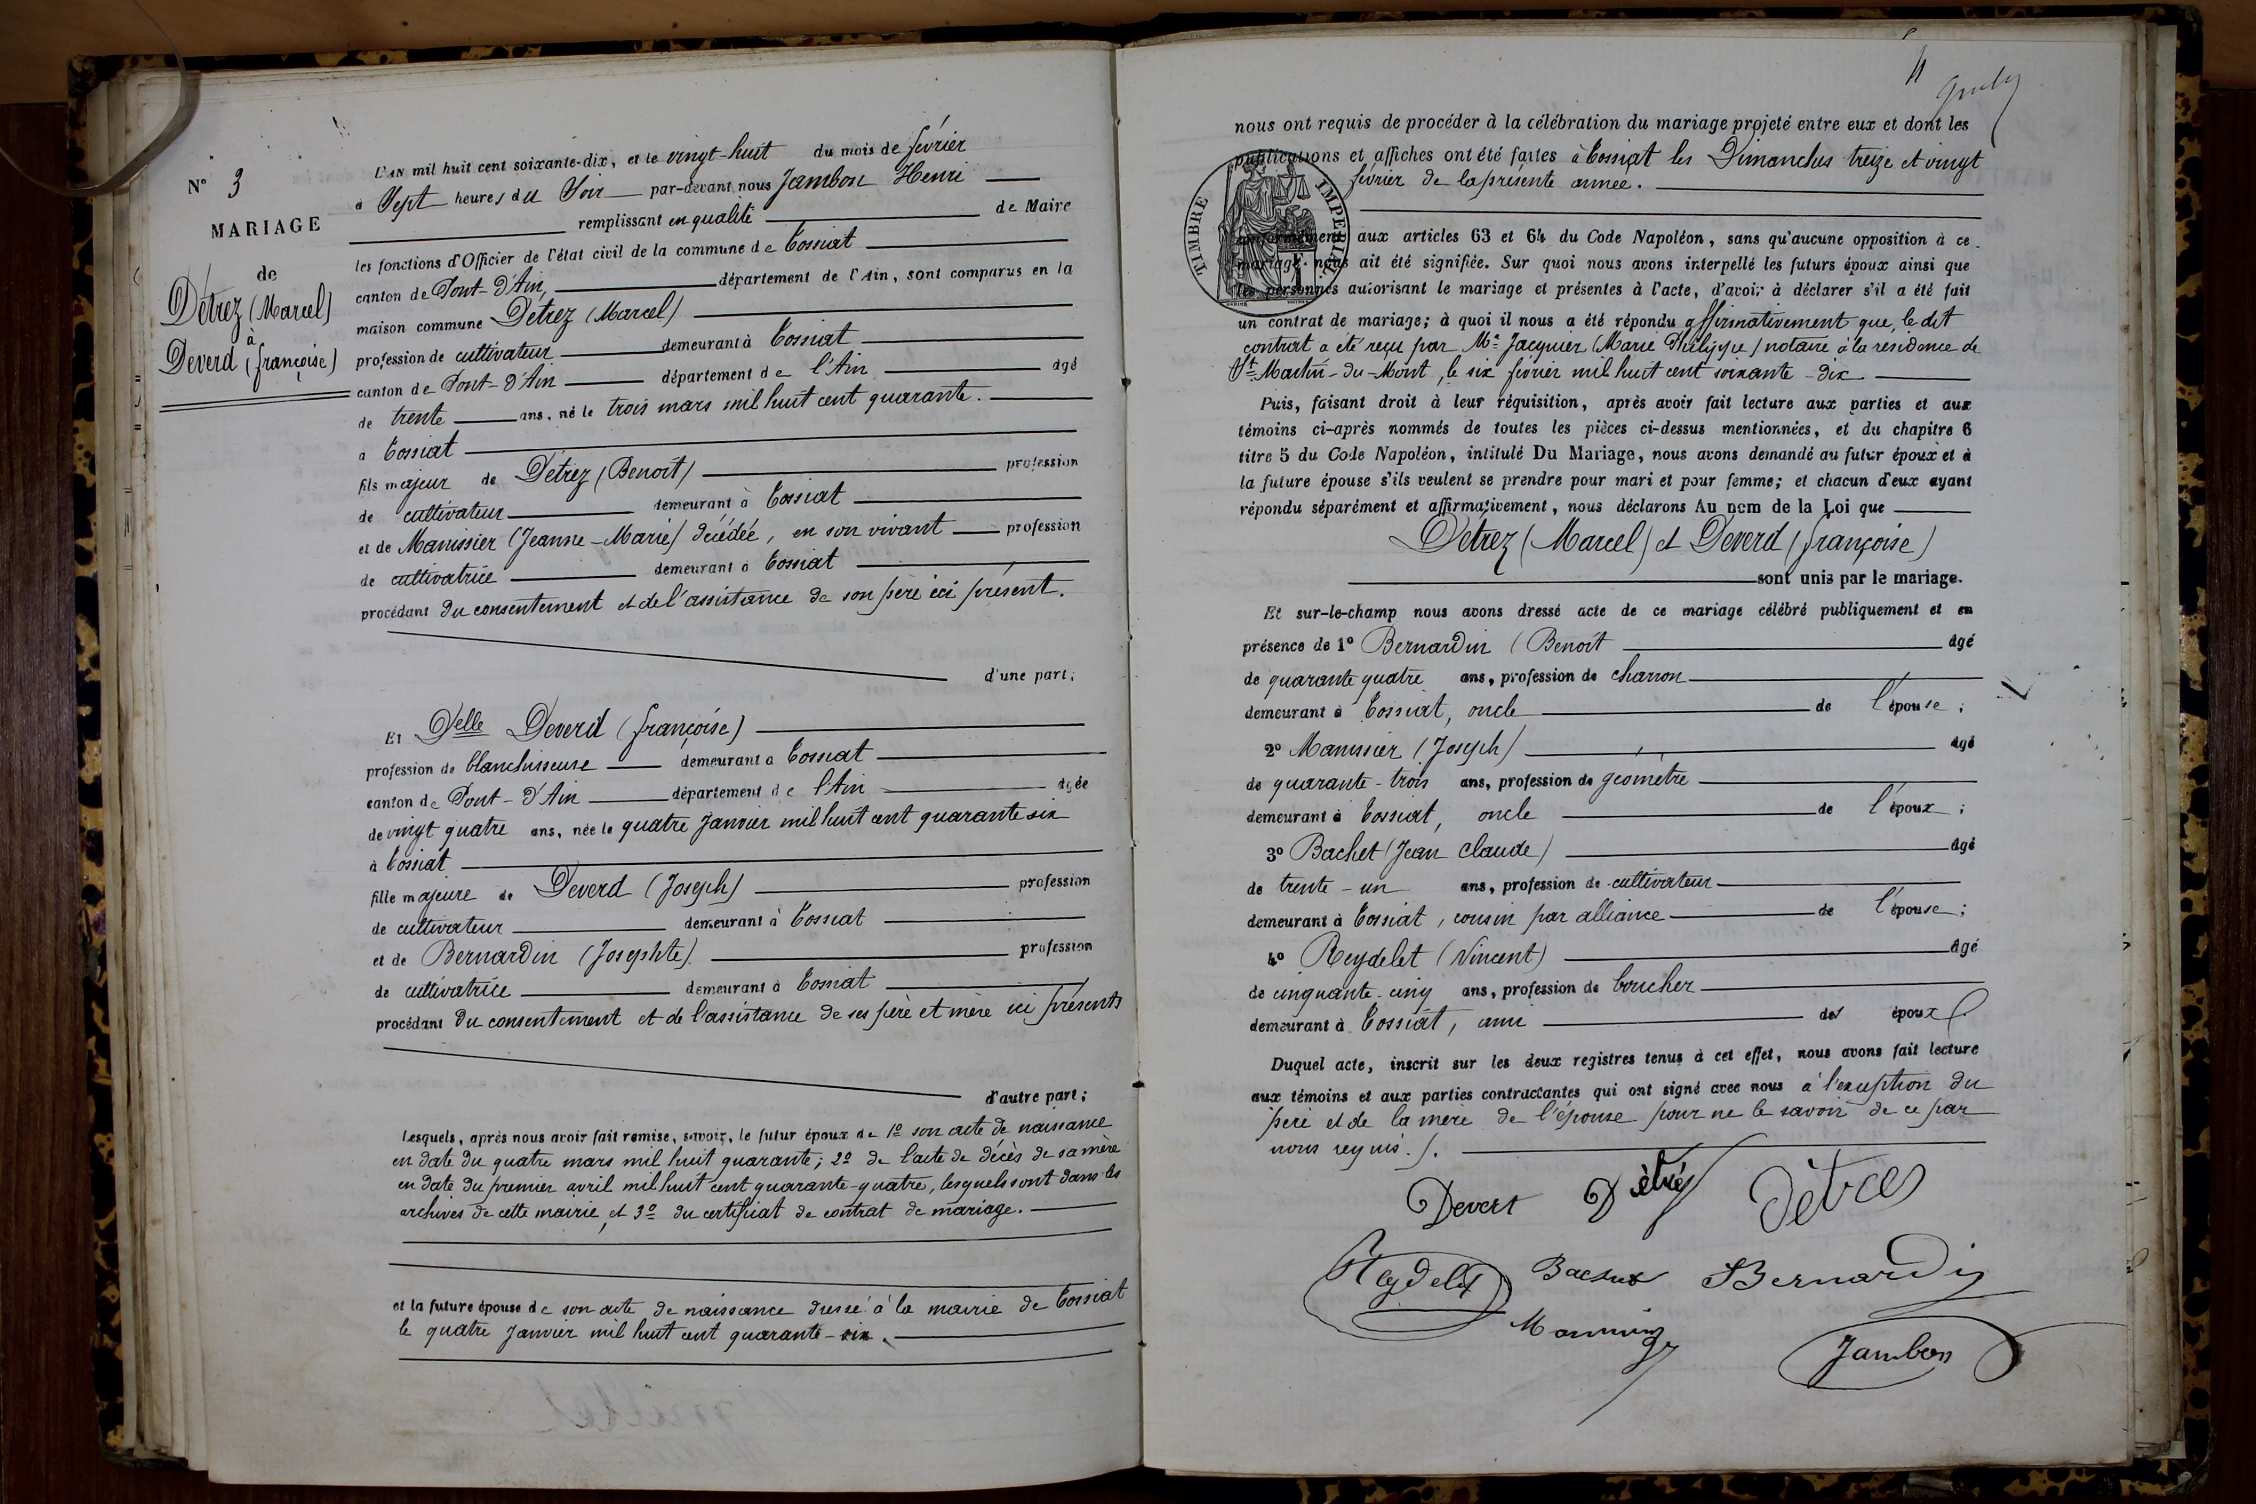 N° 3
MARIAGE
de
Détrez (Marcel)
à
Deverd (françoise)
L'AN mil huit cent soixante-dix, et le vingt-huit du mois de février
à Sept heures du Soir par-devant nous Jambon Henri
remplissant en qualité de Maire
les fonctions d'Officier de l'état civil de la commune de Tossiat
canton de Pont-d'Ain, département de l'Ain, sont comparus en la
maison commune Détrez (Marcel)
profession de cultivateur demeurant à Tossiat
canton de Pont-d'Ain département de l'Ain âgé
de trente ans, né le trois mars mil huit cent quarante.
à Tossiat
fils majeur de Détrez (Benoit) profession
de cultivateur demeurant à Tossiat
et de Manissier (Jeanne-Marie) décédée, en son vivant profession
de cultivatrice demeurant à Tossiat
procédant du consentement et de l'assistance de son père ici présent.
d'une part;
Et Delle Deverd (françoise)
profession de blanchisseuse demeurant à Tossiat
canton de Pont-d'Ain département de l'Ain âgée
de vingt quatre ans, née le quatre Janvier mil huit cent quarante six
à Tossiat
fille majeure de Deverd (Joseph) profession
de cultivateur demeurant à Tossiat
et de Bernardin (Josephte) profession
de cultivatrice demeurant à Tossiat
procédant du consentement et de l'assistance de ses père et mère ici présents
d'autre part;
Lesquels, après nous avoir fait remise, savoir, le futur époux de 1° son acte de naissance
en date du quatre mars mil huit quarante; 2° de l'acte de décès de sa mère
en date du premier avril mil huit cent quarante-quatre, lesquels sont dans les
archives de cette mairie, et 3° du certificat de contrat de mariage.
et la future épouse de son acte de naissance dressé à la mairie de Tossiat
le quatre Janvier mil huit cent quarante-six.
4
nous ont requis de procéder à la célébration du mariage projeté entre eux et dont les
publications et affiches ont été faites à Tossiat les Dimanches treize et vingt
février de la présente année.
TIMBRE IMPERIAL
conformément aux articles 63 et 64 du Code Napoléon, sans qu'aucune opposition à ce
mariage nous ait été signifiée. Sur quoi nous avons interpellé les futurs époux ainsi que
les personnes autorisant le mariage et présentes à l'acte, d'avoir à déclarer s'il a été fait
un contrat de mariage; à quoi il nous a été répondu affirmativement que, le dit
contrat a été reçu par Me Jacquier (Marie Philippe) notaire à la résidence de
St Martin-du-Mont, le six février mil huit cent soixante-dix
Puis, faisant droit à leur réquisition, après avoir fait lecture aux parties et aux
témoins ci-après nommés de toutes les pièces ci-dessus mentionnées, et du chapitre 6
titre 5 du Code Napoléon, intitulé Du Mariage, nous avons demandé au futur époux et à
la future épouse s'ils veulent se prendre pour mari et pour femme; et chacun d'eux ayant
répondu séparément et affirmativement, nous déclarons Au nom de la Loi que
Détrez (Marcel) et Deverd (françoise)
sont unis par le mariage.
Et sur-le-champ nous avons dressé acte de ce mariage célébré publiquement et en
présence de 1° Bernardin (Benoit âgé
de quarante quatre ans, profession de charron
demeurant à Tossiat, oncle de l'épouse;
2° Manissier (Joseph) âgé
de quarante-trois ans, profession de géomètre
demeurant à Tossiat, oncle de l'époux;
3° Bachet (Jean Claude) âgé
de trente-un ans, profession de cultivateur
demeurant à Tossiat, cousin par alliance de l'épouse;
4° Reydelet (Vincent) âgé
de cinquante-cinq ans, profession de boucher
demeurant à Tossiat, ami des époux.
Duquel acte, inscrit sur les deux registres tenus à cet effet, nous avons fait lecture
aux témoins et aux parties contractantes qui ont signé avec nous à l'exception du
père et de la mère de l'épouse pour ne le savoir de ce par
nous requis ./.
Devert Détréz Détrez
Reydelet Bachet Bernardin
Manissier
Jambon